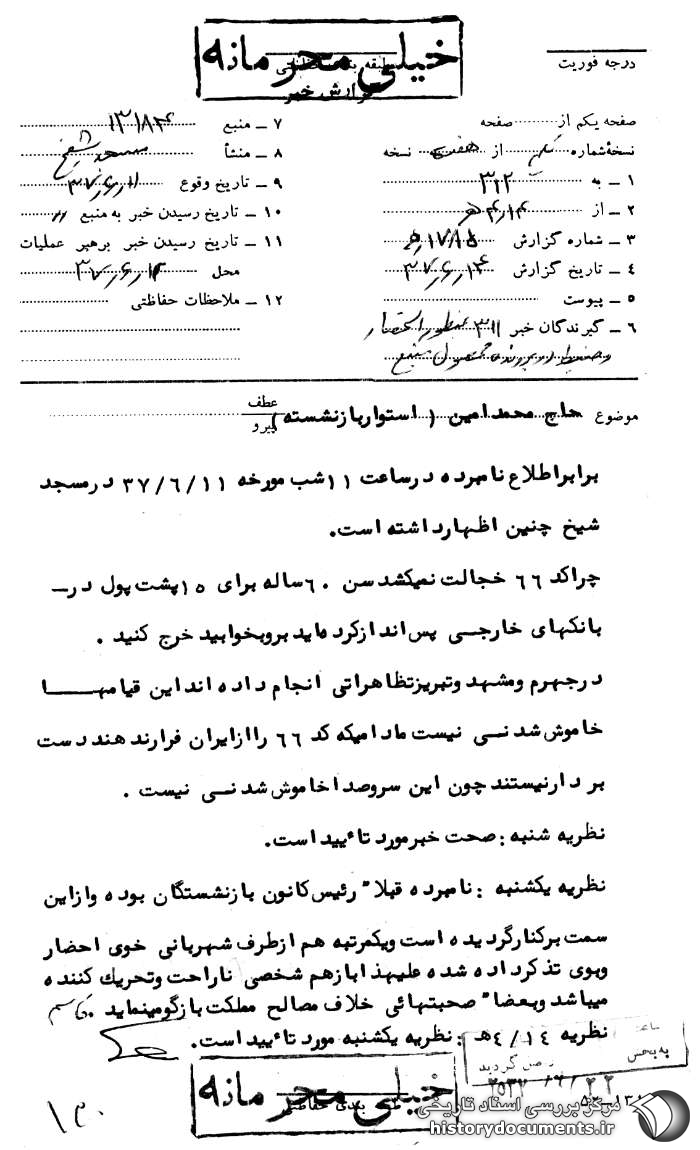 خیلی محرمانه
گزارش خبر
درجه فوریت
صفحه یکم از صفحه
نسخه شماره یکم از هفت نسخه
۱ ـ به ۳۱۲
۲ ـ از ۴/۱۴ ه
۳ ـ شماره گزارش
۴ ـ تاریخ گزارش ۳۷/۶/۱۴
۵ ـ پیوست
۶ ـ گیرندگان خبر ۳۱۱ بمنظور استحضار
و ضبط در پرونده منبع
۷ ـ منبع ۱۳۱۸۴
۸ ـ منشأ مسجد شیخ
۹ ـ تاریخ وقوع ۳۷/۶/۱۱
۱۰ ـ تاریخ رسیدن خبر به منبع "
۱۱ ـ تاریخ رسیدن خبر برهبر عملیات
محل ۳۷/۶/۱۲
۱۲ ـ ملاحظات حفاظتی
موضوع حاج محمدامین (استوار بازنشسته)
عطف
پیرو
برابر اطلاع نامبرده در ساعت ۱۱ شب مورخه ۳۷/۶/۱۱ در مسجد
شیخ چنین اظهار داشته است.
چرا کد ۶۶ خجالت نمیکشد سن ۶۰ ساله برای ۱۵ پشت پول در ـ
بانکهای خارجی پس انداز کرده باید برو بخوابید خرج کنید .
در جهرم و مشهد و تبریز تظاهراتی انجام داده اند این قیامها
خاموش شدنی نیست مادامیکه کد ۶۶ را از ایران فرار ندهند دست
بر دار نیستند چون این سروصدا خاموش شدنی نیست .
نظریه شنبه : صحت خبر مورد تائید است.
نظریه یکشنبه : نامبرده قبلا" رئیس کانون بازنشستگان بوده و از این
سمت برکنار گردیده است و یکمرتبه هم از طرف شهربانی خوی احضار
و بوی تذکر داده شده علیهذا باز هم شخصی ناراحت و تحریک کننده
میباشد و بعضا" صحبتهائی خلاف مصالح مملکت بازگو مینماید . قاسم
نظریه ۴/۱۴ ه : نظریه یکشنبه مورد تائید است.
به بخش
گردید
۲۵۳۷ /۶/ ۲۲
خیلی محرمانه
طبقه بندی حفاظتی
۱۳۰
مرکز بررسی اسناد تاریخی
historydocuments.ir